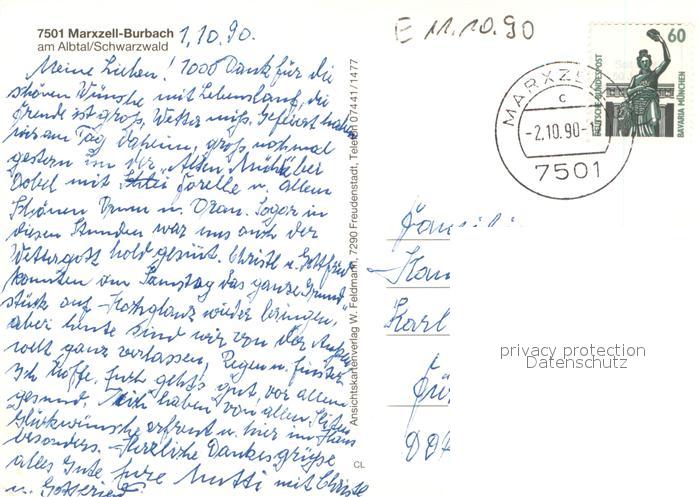 7501 Marxzell-Burbach
am Albtal/Schwarzwald
1.10.90.
E 11.10.90
Meine Lieben! 1000 Dank für die
schönen Wünsche mit Lebenslauf, die
Freude ist groß, Wetter miß. Gefeiert haben
wir am Tag daheim, groß nochmal
gestern in der "Alten Mühle" bei
Dobel mit Forelle u. allem
Schönen Drum u. Dran. Sogar in
diesen Stunden war uns auch der
Wettergott hold gesinnt. Christl u. Gottfried
konnten am Samstag das ganze Grund-
stück auf Hochglanz wieder bringen,
aber heute sind wir von der Außen-
welt ganz verlassen, Regen u. finster.
Ich hoffe, Euch geht's gut, vor allem
gesund. haben von allen Seiten
Glückwünsche erfreut u. hier im Haus
besonders. Herzliche Dankesgrüße
alles Gute Eure Mutti mit Christl
u. Gottfried
Ansichtskartenverlag W. Feldmann, 7290 Freudenstadt, Telefon 07441/1477
CL
60
DEUTSCHE BUNDESPOST
BAVARIA MÜNCHEN
MARXZELL
c
-2.10.90-1
7501
Karl
DDR
privacy protection
Datenschutz